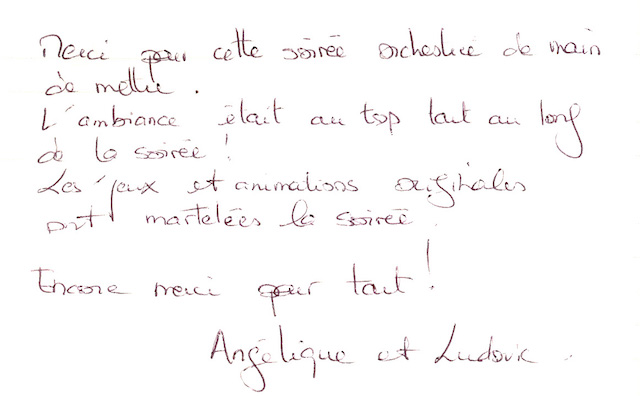 Merci pour cette soirée orchestrée de main
de maître.
L'ambiance était au top tout au long
de la soirée !
Les jeux et animations originales
ont martelées la soirée.
Encore merci pour tout !
Angélique et Ludovic.